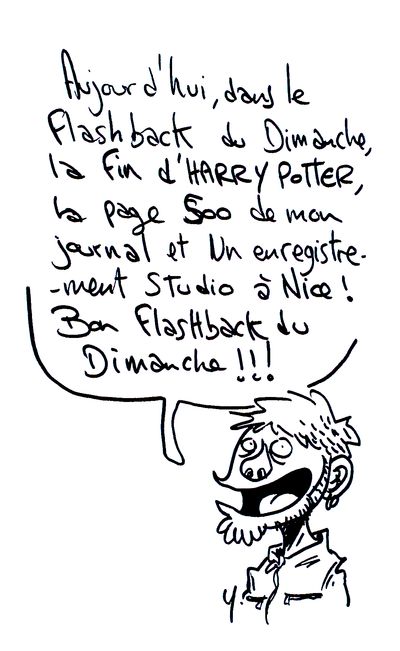 Aujourd'hui, dans le
Flashback du Dimanche,
la fin d'HARRY POTTER,
la page 500 de mon
journal et Un enregistre-
-ment Studio à Nice !
Bon Flashback du
Dimanche !!!
y.